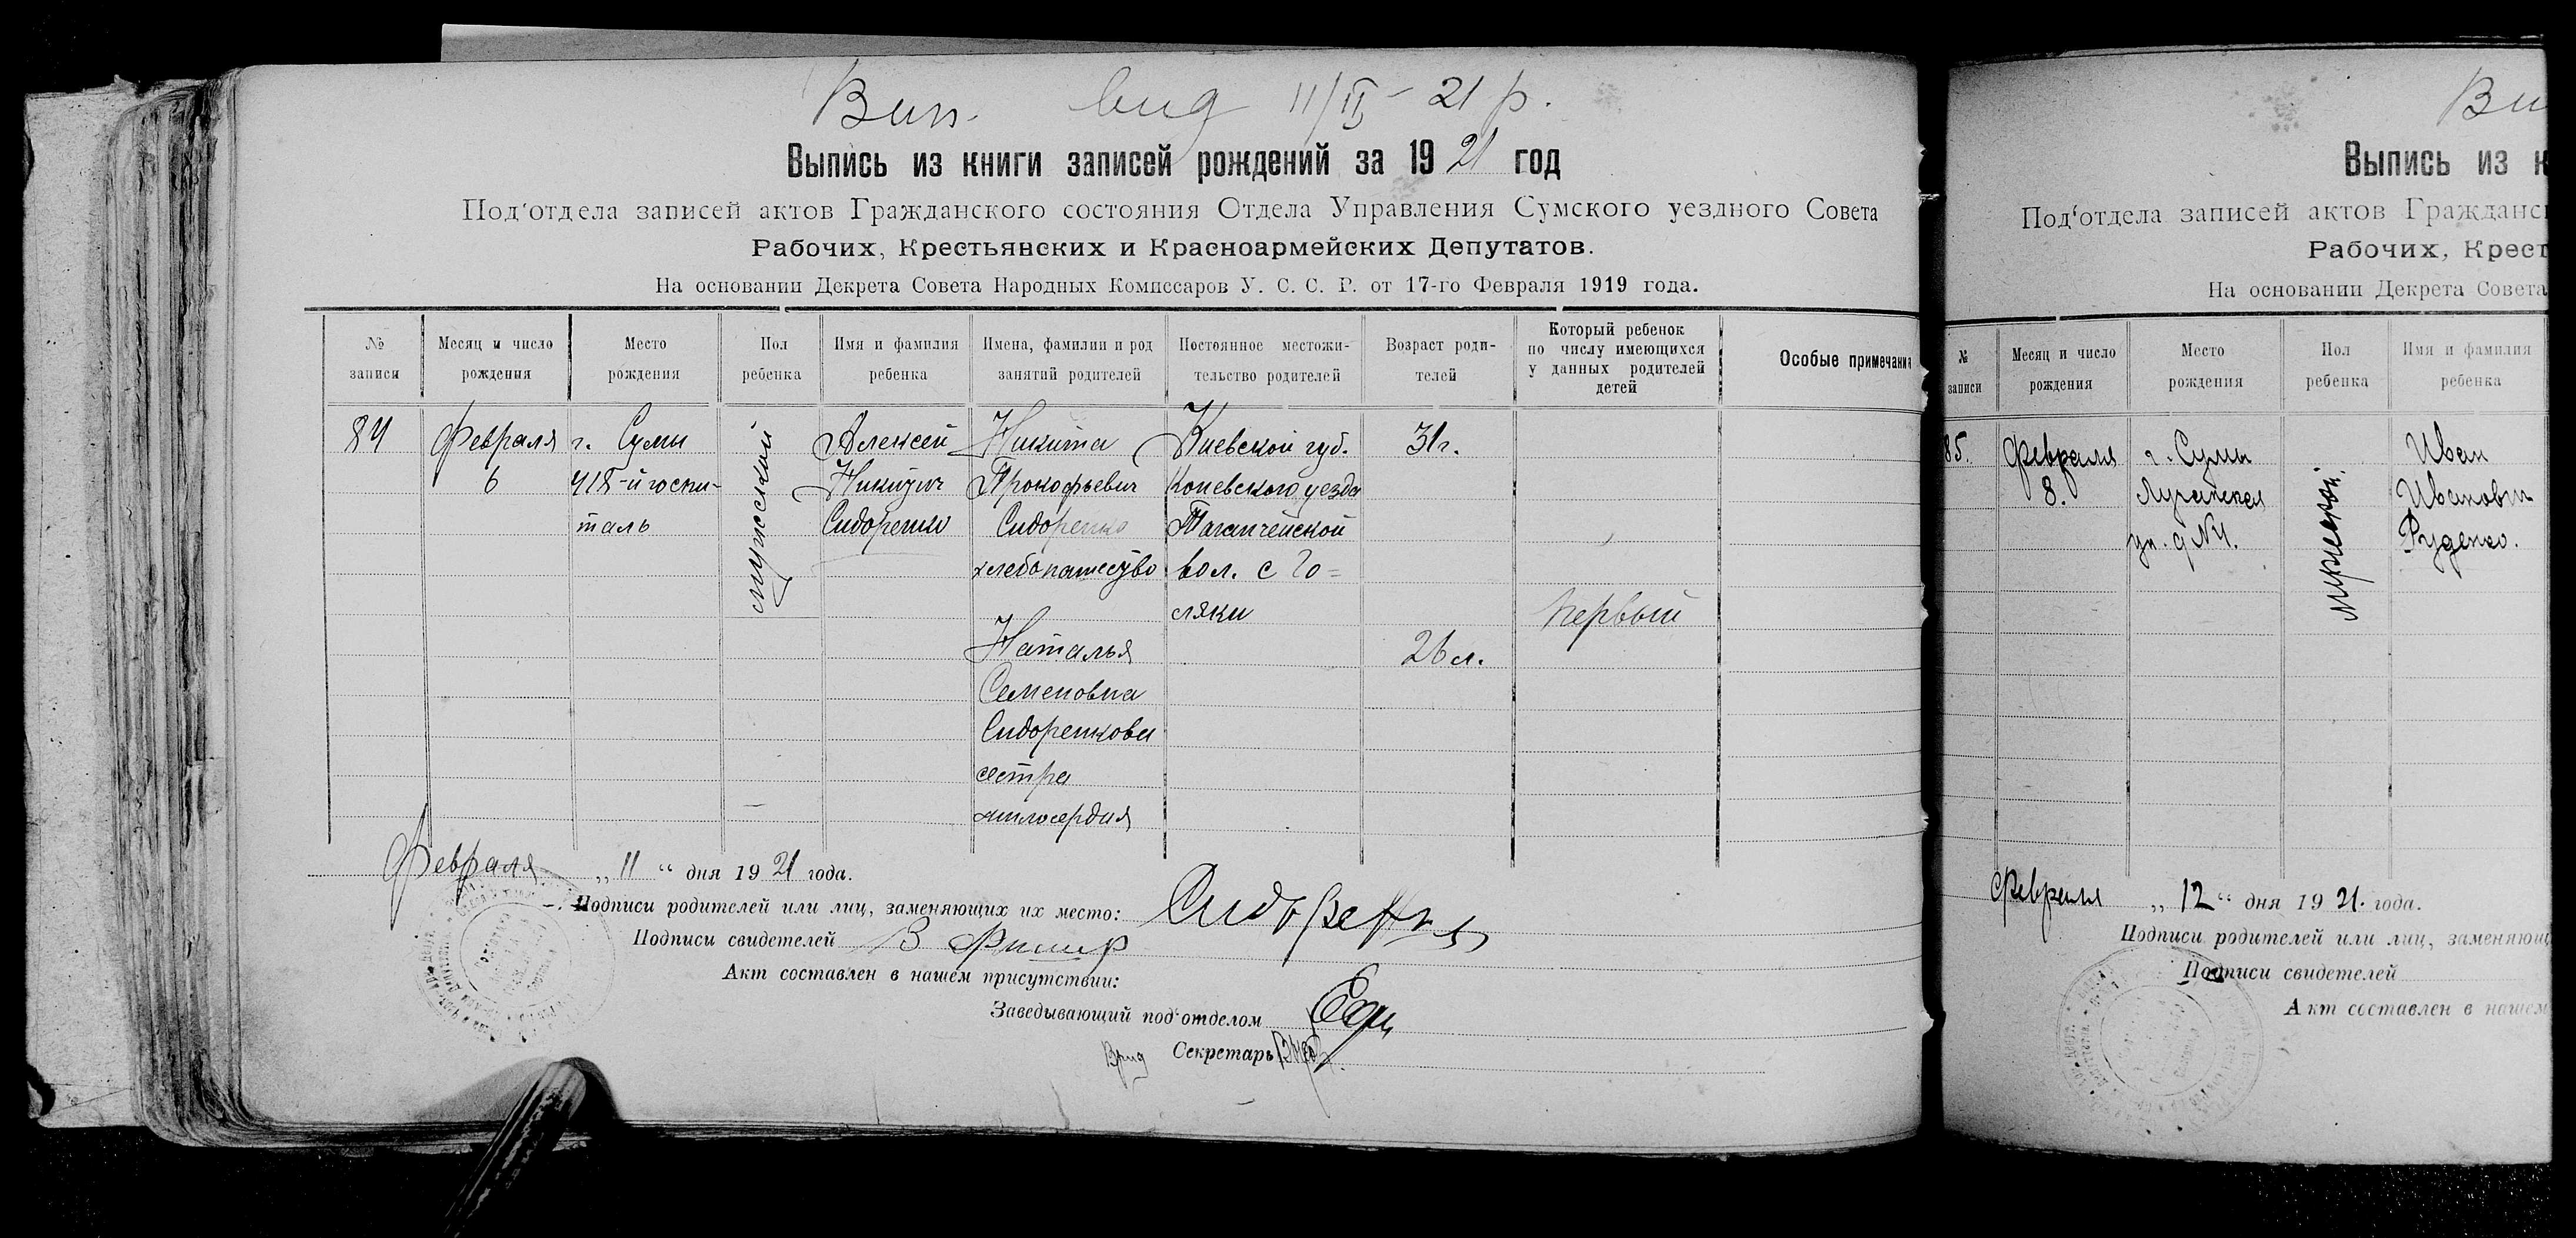 Вип. вид 11/II - 21 р.
Выпись из книги записей рождений за 1921 год
Под'отдела записей актов Гражданского состояния Отдела Управления Сумского уездного Совета
Рабочих, Крестьянских и Красноармейских Депутатов.
На основании Декрета Совета Народных Комиссаров У. С. С. Р. от 17-го Февраля 1919 года.
№ записи
Месяц и число рождения
Место рождения
Пол ребенка
Имя и фамилия ребенка
Имена, фамилии и род занятий родителей
Постоянное местожи-
тельство родителей
Возраст роди-
телей
Который ребенок
по числу имеющихся
у данных родителей
детей
Особые примечания
84
Февраля
6
г. Сумы
418-й госпи-
таль
мужской
Алексей
Никитич
Сидоренко
Никита
Прокофьевич
Сидоренко
хлебопашество
Наталья
Семеновна
Сидоренкова
сестра
милосердия
Киевской губ.
Каневского уезда
Таганчейской
вол. с Го=
ляки
31 г.
26 л.
первый
Февраля „ 11 “ дня 1921 года.
Подписи родителей или лиц, заменяющих их место: Сидоренко
Подписи свидетелей
Акт составлен в нашем присутствии:
Заведывающий под'отделом
Врид Секретарь
Ви
Выпись из к
Под'отдела записей актов Гражданс
Рабочих, Крест
На основании Декрета Совета
№
записи
Месяц и число
рождения
Место
рождения
Пол
ребенка
Имя и фамилия
ребенка
85.
Февраля
8.
г. Сумы
Луганская
ул. д № 4.
мужской.
Иван
Иванович
Руденко.
Февраля „ 12 “ дня 1921. года.
Подписи родителей или лиц, заменяющ
Подписи свидетелей
Акт составлен в нашем